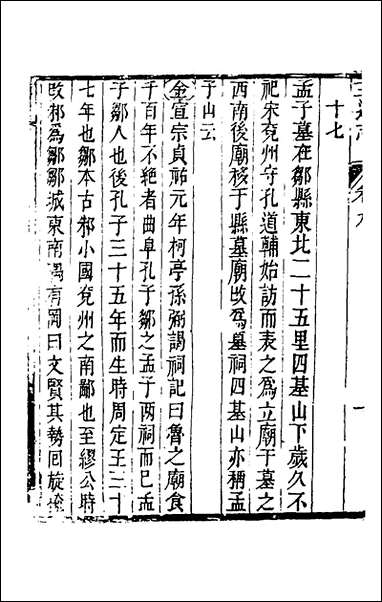 十七
孟子墓在鄒縣東北二十五里四基山下歲久不
祀宋兗州守孔道輔始訪而表之爲立廟于墓之
西南後廟移于縣墓廟改爲墓祠四基山亦稱孟
子山云
金宣宗貞祐元年柯亭孫弼謁祠記曰魯之廟食
千百年不絶者曲阜孔子鄒之孟子两祠而已孟
子鄒人也後孔子三十五年而生時周定王三十
七年也鄒本古邾小國兗州之南鄙也至繆公時
改邾爲鄒鄒城東南隅有岡曰文賢其勢囘旋掩